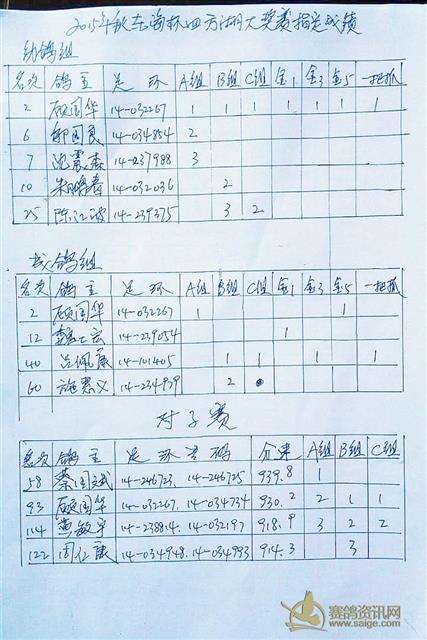 2015年秋东海杯四方湖大奖赛指定成绩
幼鸽组
名次 鸽主 足环 A组 B组 C组 金1 金3 金5 一把抓
2 顾国华 14-032267 1 1 1 1 1 1 1
6 邹国良 14-034854 2
7 沈震春 14-237988 3
10 朱 14-032036 2
25 陈江波 14-239375 3 2
成鸽组
名次 鸽主 足环 A组 B组 C组 金1 金3 金5 一把抓
2 顾国华 14-032267 1 1
12 宏 14-239054 1
40 吕佩康 14-101405 1 1 1 1
60 施惠义 14-234979 2
对子赛
名次 鸽主 足环号码 分速 A组 B组 C组
58 蔡国斌 14-246723. 14-246725 939.8 1
93 顾国华 14-032267. 14-034734 930.2 2 1 1
114 黄敏宇 14-238814. 14-032197 918.9 3 2 2
122 周仁康 14-034948. 14-034993 914.3 3
赛鸽资讯网
www.saige.com